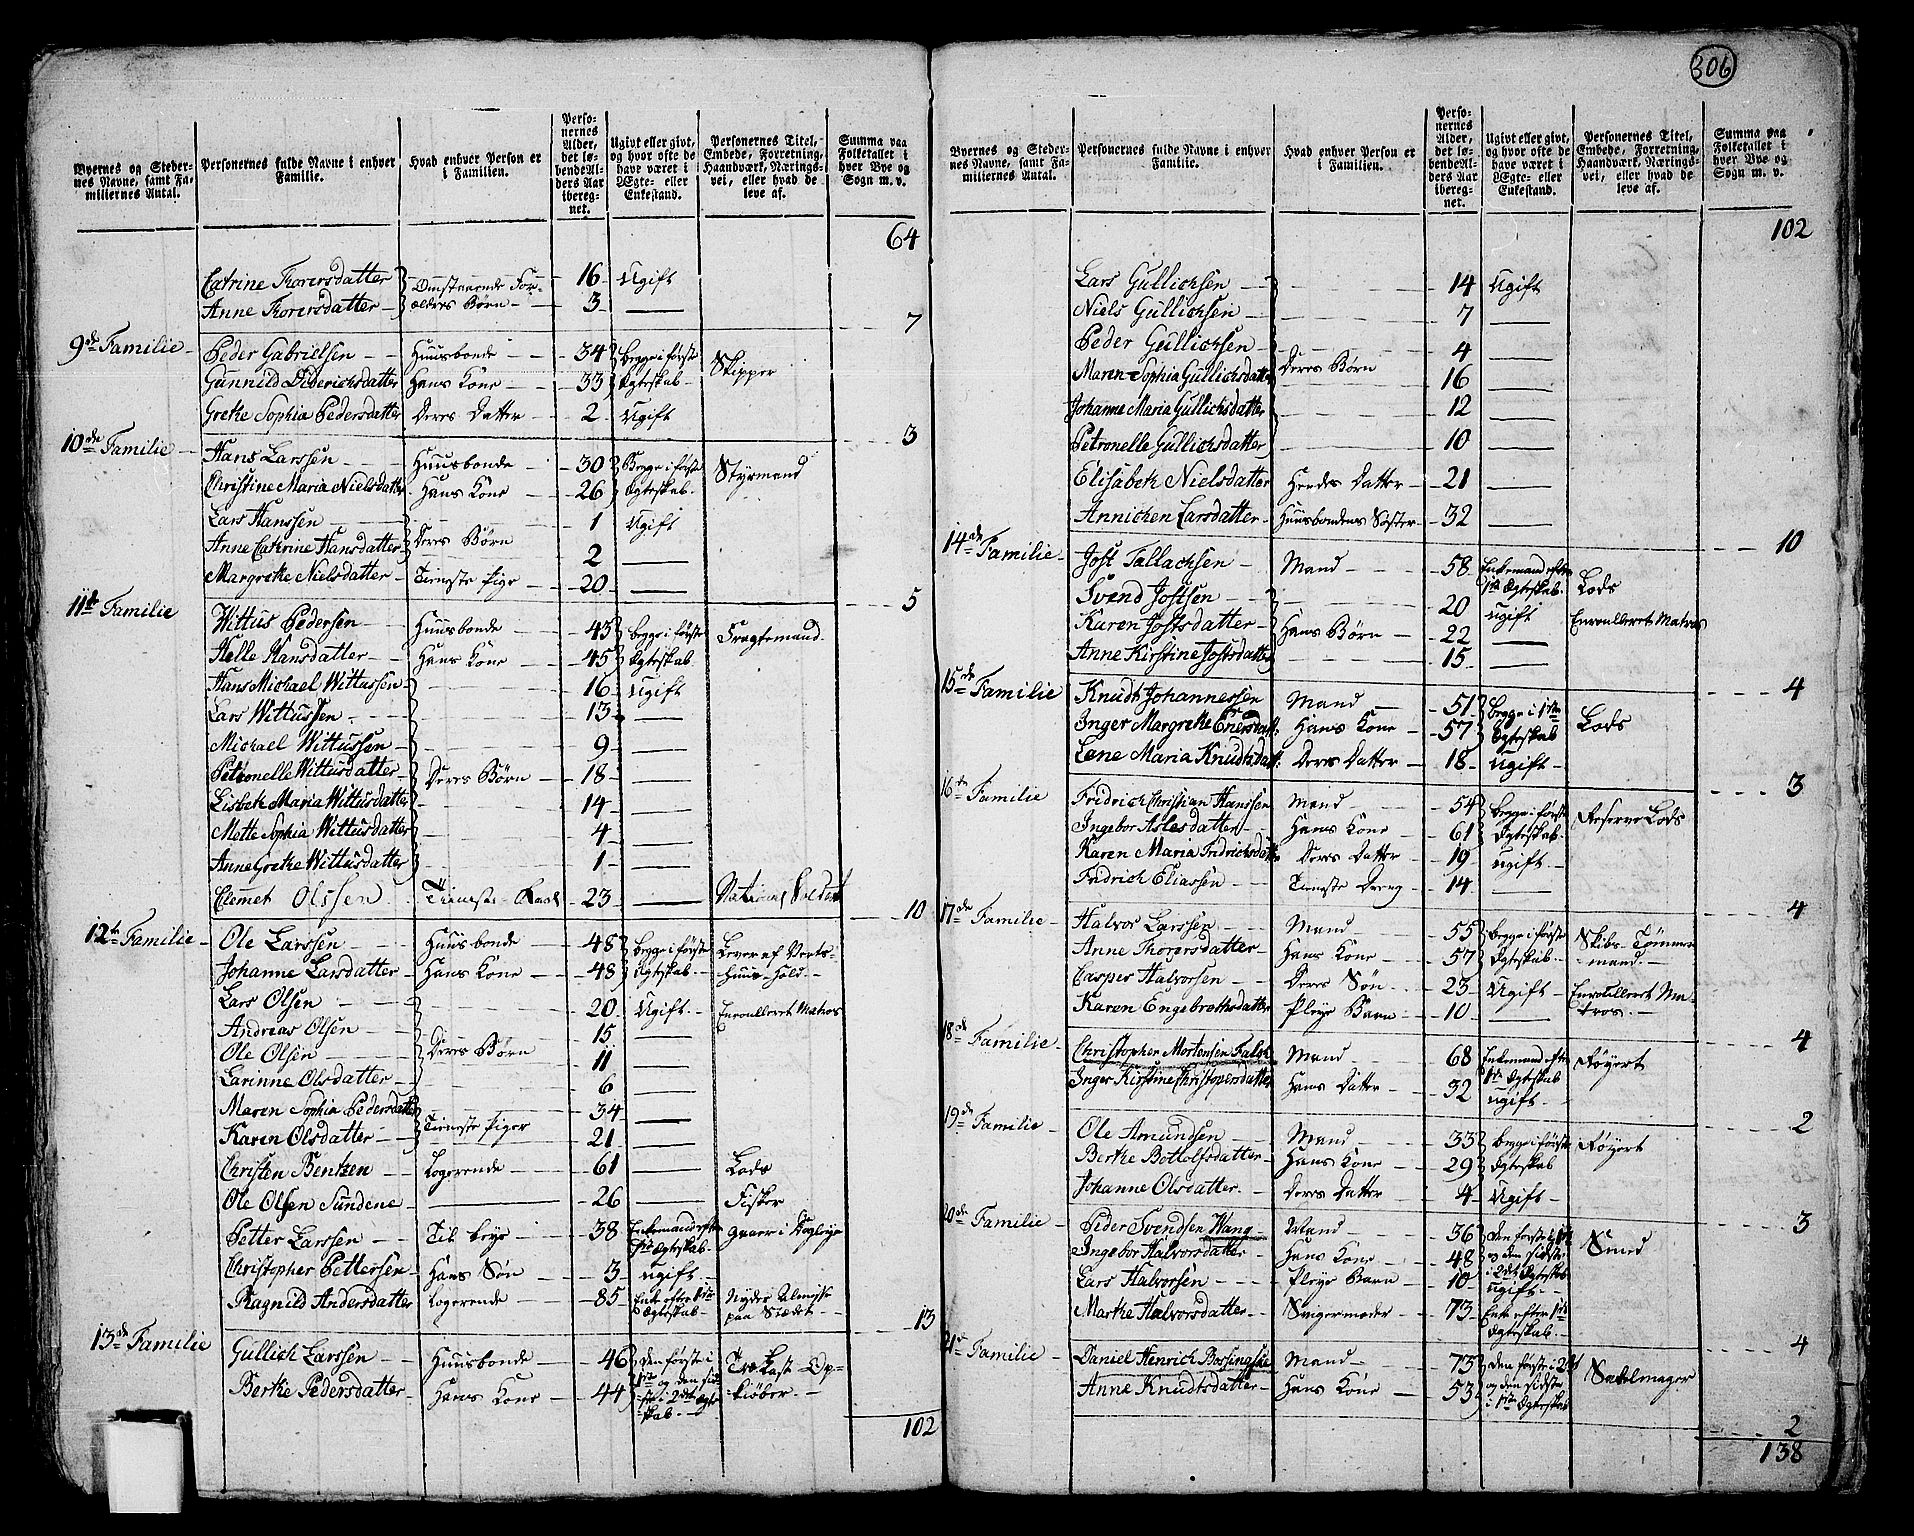 306
Byernes og Steder-
nes Navne, samt Fa-
miliernes Antal.
Personernes fulde Navne i enhver
Familie.
Hvad enhver Person er
i Familien.
Perso-
nernes
Alder,
det lø-
bende Al-
ders Aar
iberegn-
et.
Ugivt eller givt,
og hvor ofte de
have været i
Ægte- eller
Enkestand.
Personernes Titel,
Embede, Forretning,
Haandværk, Nærings-
vei, eller hvad de
leve af.
Summa paa
Folketallet i
hver Bye og
Sogn m. v.
64
Catrine Thorersdatter Omstaaende For- 16 Ugift
Anne Thorersdatter ældres Børn 3 —
7
9de Familie Peder Gabrielsen Huusbonde 34 begge i første Skipper
Gunnild Diderichsdatter Hans Kone 33 Egteskab
Grethe Sophia Pedersdatter Deres Datter 2 Ugift
3
10de Familie Hans Larssen Huusbonde 30 Begge i første Styrmand
Christine Maria Nielsdatter Hans Kone 26 Egteskab
Lars Hanssen 1 Ugift
Anne Cathrine Hansdatter Deres Børn 2 —
Margrethe Nielsdatter Tieneste Pige 20 —
5
11te Familie Wittus Pedersen Huusbonde 43 begge i første Fragtemand
Helle Hansdatter Hans Kone 45 Egteskab
Hans Michael Wittussen 16 Ugift
Lars Wittussen 13 —
Michael Wittussen 9 —
Petronelle Wittusdatter Deres Børn 18 —
Lisbeth Maria Wittusdatter 14 —
Mette Sophia Wittusdatter 4 —
Anne Grethe Wittusdatter 1 —
Clemet Olssen Tieneste Karl 23 — National Soldat
10
12te Familie Ole Larssen Huusbonde 48 begge i første Lever af Verts-
Johanne Larsdatter Hans Kone 48 Egteskab Huus-Hold
Lars Olsen 20 Ugift Enroulleret Matros
Andreas Olsen 15 —
Ole Olsen Deres Børn 11 —
Larinne Olsdatter 6 —
Maren Sophia Pedersdatter 34 —
Karen Olsdatter Tieneste Piger 21 —
Christen Bentzen Logerende 61 — Lods
Ole Olsen Sundene — 26 — Fisker
Petter Larssen Til Leye 38 Enkemand efter
1ste Egteskab
Christopher Pettersen Hans Søn 3 ugift
Ragnild Andersdatter Logerende 85 Enke efter 1ste Nyder Almisse
Egteskab paa Stædet
13
13de Familie Gullich Larssen Huusbonde 46 Den første i Trælast Op-
Berthe Pedersdatter Hans Kone 44 1ste og den sid- kiøber
ste i 2det Egte-
skab
102
Byernes og Steder-
nes Navne, samt Fa-
miliernes Antal.
Personernes fulde Navne i enhver
Familie.
Hvad enhver Person er
i Familien.
Perso-
nernes
Alder,
det lø-
bende Al-
ders Aar
iberegn-
et.
Ugivt eller givt,
og hvor ofte de
have været i
Ægte- eller
Enkestand.
Personernes Titel,
Embede, Forretning,
Haandværk, Nærings-
vei, eller hvad de
leve af.
Summa paa
Folketallet i
hver Bye og
Sogn m. v.
102
Lars Gullichsen 14 Ugift
Niels Gullichsen 7 —
Peder Gullichsen 4 —
Maren Sophia Gullichsdatter Deres Børn 16 —
Johanne Maria Gullichsdatter 12 —
Petronelle Gullichsdatter 10 —
Elisabeth Nielsdatter Hendes Datter 21 —
Annichen Larsdatter Huusbondens Søster 32 —
10
14de Familie Jost Tallachsen Mand 58 Enkemand efter Lods
1ste Egteskab
Svend Jostsen 20 ugift Enroulleret Matros
Karen Jostsdatter Hans Børn 22 —
Anne Kirstine Jostsdatter 15 —
4
15de Familie Knudt Johannessen Mand 51 begge i 1ste Lods
Inger Margrethe Enersdatt: Hans Kone 57 Egteskab
Lene Maria Knudtsdatt: Deres Datter 18 ugift
3
16te Familie Fridrich Christian Hanssen Mand 54 begge i første Reserve Lods
Ingebor Aslesdatter Hans Kone 61 Egteskab
Karen Maria Fridrichsdatter Deres Datter 19 ugift
Fridrich Eliassen Tieneste Dreng 14 —
4
17de Familie Halvor Larssen Mand 55 begge i første Skibs-Tømmer-
Anne Thorersdatter Hans Kone 57 Egteskab mand
Casper Halvorsen Deres Søn 23 Ugift Enroulleret Ma-
Karen Engebrethsdatter Pleye Barn 10 — tros
4
18de Familie Christopher Mortensen Falsk Mand 68 Enkemand efter Røgert
1ste Egteskab
Inger Kirstine Christopersdatter Hans Datter 32 ugift
2
19de Familie Ole Amundsen Mand 33 begge i første Røgert
Berthe Bottolfsdatter Hans Kone 29 Egteskab
Johanne Olsdatter Deres Datter 4 Ugift
3
20de Familie Peder Svendsen Wang Mand 36 den første i 1ste Smed
Ingebor Halvorsdatter Hans Kone 48 og den sidste
i 2det Egteskab
Lars Halvorsen Pleye Barn 10 ugift
Marthe Halvorsdatter Svigermoder 73 Enke efter 1ste
Egteskab
4
21de Familie Daniel Henrich Mand 73 den første i 2det Sadelmager
Anne Knudtsdatter Hans Kone 53 og den sidste
i 1ste Egteskab
2
138